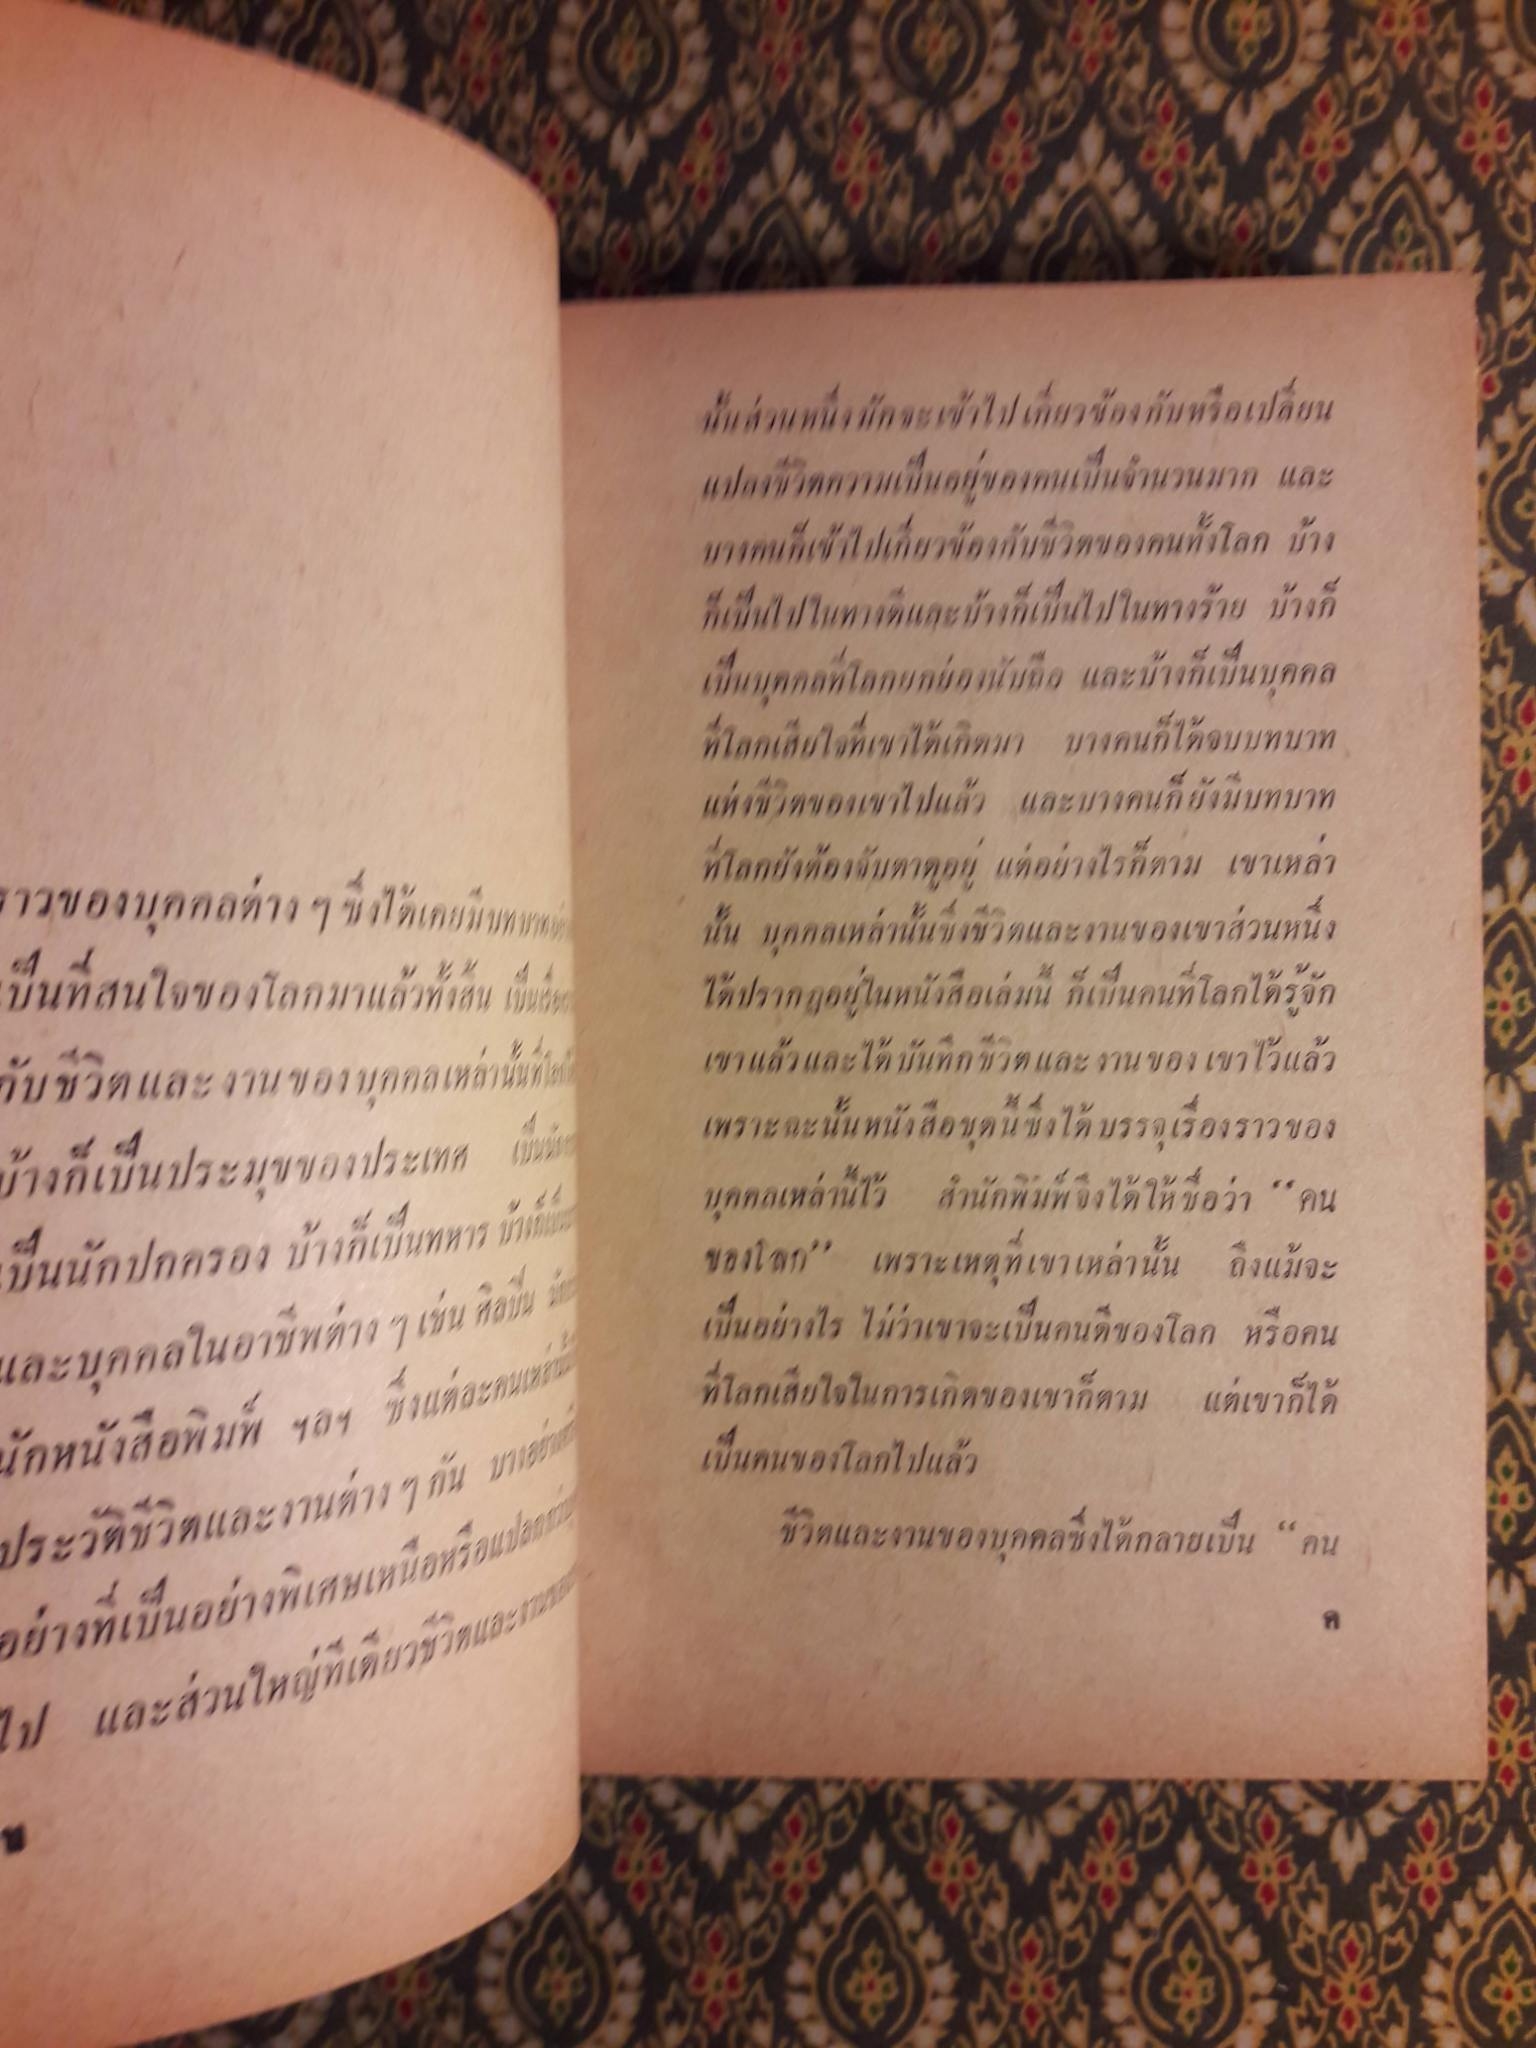 ราวของบุคคลต่าง ๆ ซึ่งได้เคยมีบทบาท
เป็นที่สนใจของโลกมาแล้วทั้งสิ้น
กับชีวิตและงานของบุคคลเหล่านั้นที่
บ้างก็เป็นประมุขของประเทศ
เป็นนักปกครอง บ้างก็เป็นทหาร
และบุคคลในอาชีพต่าง ๆ เช่น ศิลปิน
นักหนังสือพิมพ์ ฯลฯ ซึ่งแต่ละคนเหล่านี้
ประวัติชีวิตและงานต่าง ๆ กัน
อย่างที่เป็นอย่างพิเศษเหนือหรือแปลกกว่า
ไป และส่วนใหญ่ทีเดียวชีวิตและงานของ
ข
นั้นส่วนหนึ่งมักจะเข้าไปเกี่ยวข้องกับหรือเปลี่ยน
แปลงชีวิตความเป็นอยู่ของคนเป็นจำนวนมาก และ
บางคนก็เข้าไปเกี่ยวข้องกับชีวิตของคนทั้งโลก บ้าง
ก็เป็นไปในทางดีและบ้างก็เป็นไปในทางร้าย บ้างก็
เป็นบุคคลที่โลกยกย่องนับถือ และบ้างก็เป็นบุคคล
ที่โลกเสียใจที่เขาได้เกิดมา บางคนก็ได้จบบทบาท
แห่งชีวิตของเขาไปแล้ว และบางคนก็ยังมีบทบาท
ที่โลกยังต้องจับตาดูอยู่ แต่อย่างไรก็ตาม เขาเหล่า
นั้น บุคคลเหล่านั้นซึ่งชีวิตและงานของเขาส่วนหนึ่ง
ได้ปรากฎอยู่ในหนังสือเล่มนี้ ก็เป็นคนที่โลกได้รู้จัก
เขาแล้วและได้บันทึกชีวิตและงานของเขาไว้แล้ว
เพราะฉะนั้นหนังสือชุดนี้ซึ่งได้บรรจุเรื่องราวของ
บุคคลเหล่านี้ไว้ สำนักพิมพ์จึงได้ให้ชื่อว่า “คน
ของโลก” เพราะเหตุที่เขาเหล่านั้น ถึงแม้จะ
เป็นอย่างไร ไม่ว่าเขาจะเป็นคนดีของโลก หรือคน
ที่โลกเสียใจในการเกิดของเขาก็ตาม แต่เขาก็ได้
เป็นคนของโลกไปแล้ว
ชีวิตและงานของบุคคลซึ่งได้กลายเป็น “คน
ค